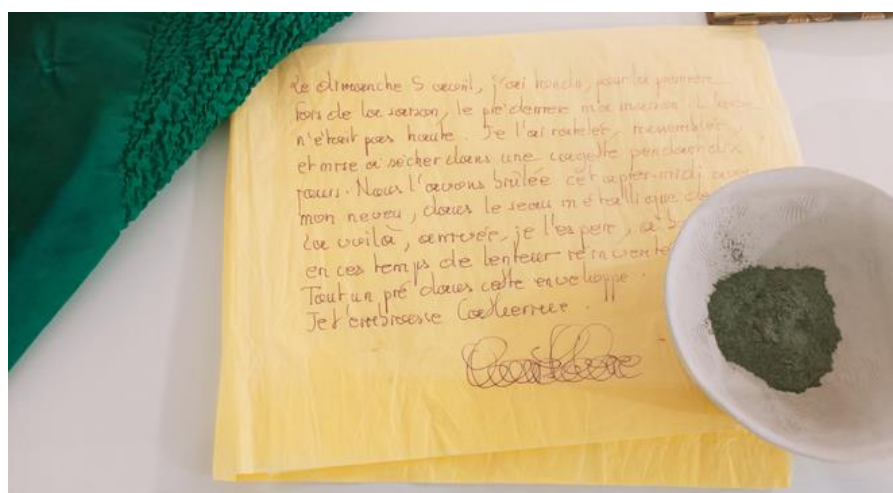 Le dimanche 5 avril, j'ai tondu, pour la première
fois de la saison, le pré derrière ma maison. L'herbe
n'était pas haute. Je l'ai ratelée, rassemblée,
et mise à sécher dans une cagette pendant dix
jours. Nous l'avons brûlée cet après-midi avec
mon neveu, dans le seau métallique de
La voilà, arrivée, je l'espère, à b
en ces temps de lenteur réinventée
Tout un pré dans cette enveloppe.
Je t'embrasse Catherine.